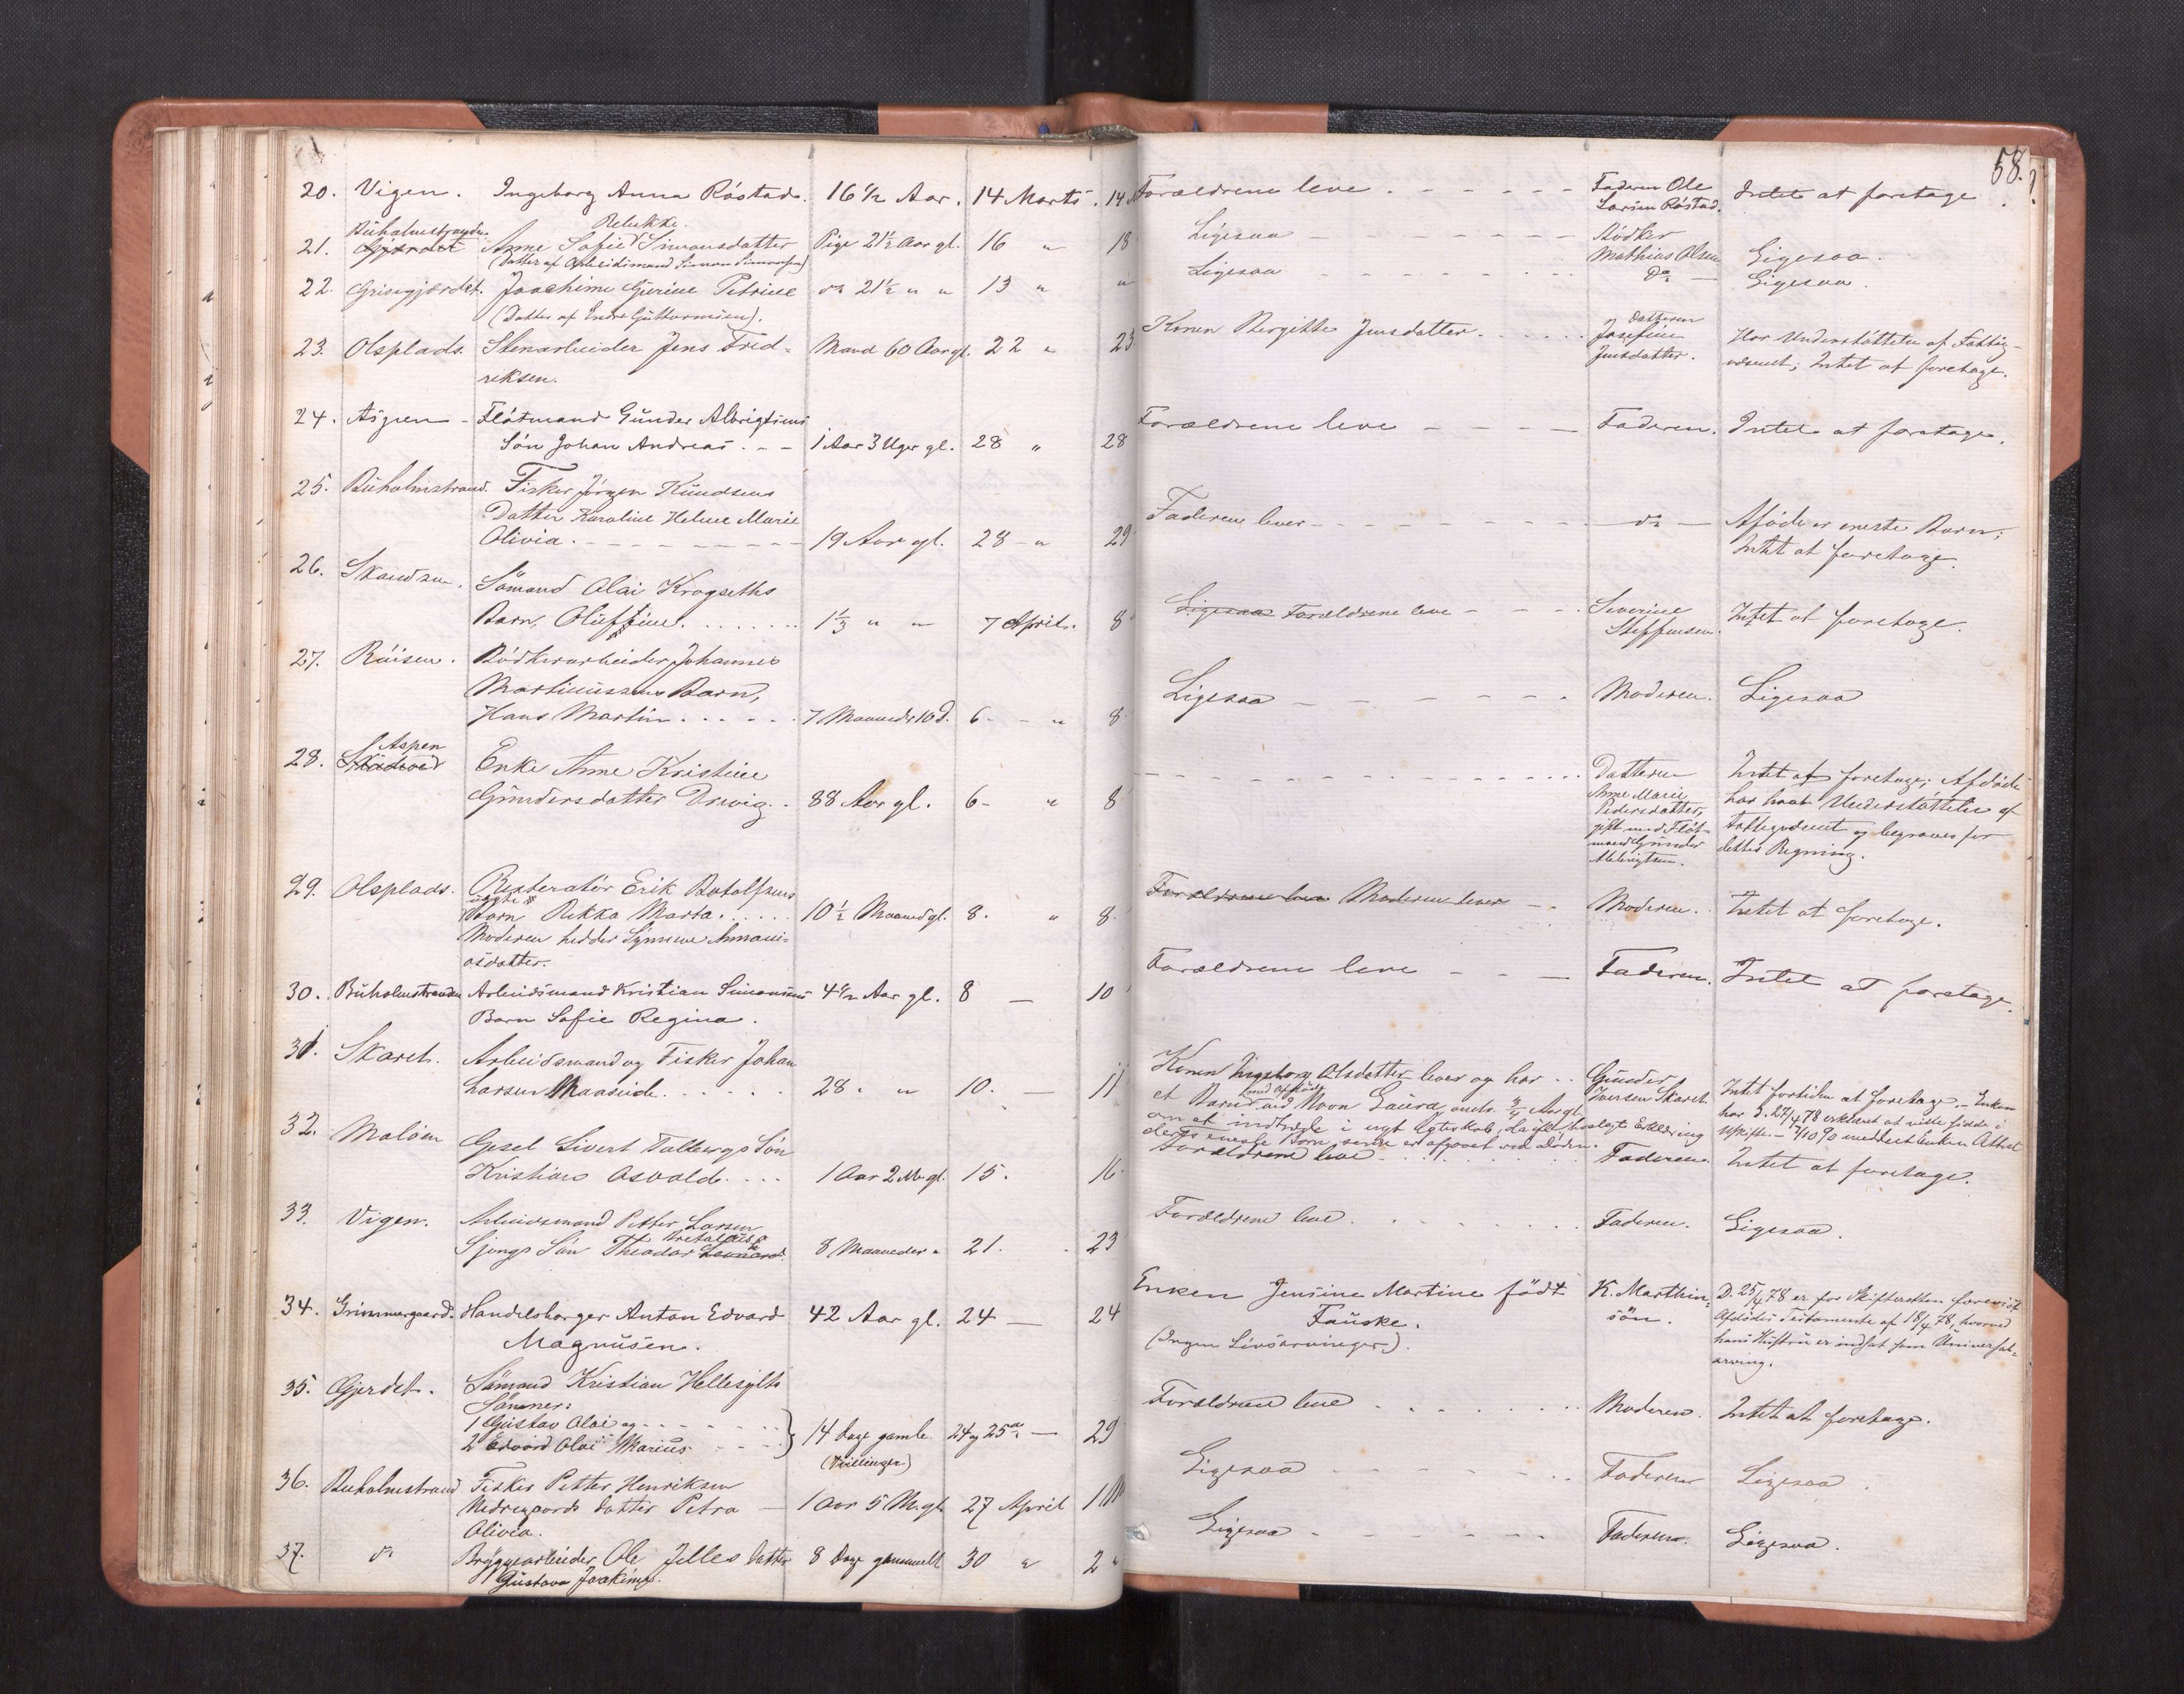 58.
20. Vigen. Ingeborg Anna Röstad. 16 1/2 Aar. 14 Marts. 14 Forældrene leve - - - Faderen Ole Intet at foretage.
Larsen Röstad.
Buholmstranden. Rebekka.
21. Gjærdet Anne Sofie Simonsdatter Pige 21 1/2 Aar gl. 16 " 18 Ligesaa - - - Bödker
(Datter af Arbeidsmand Simon Simonsen) Mathias Olsen Ligesaa.
22. Grisegjærdet. Joachime Gurine Petrine do 21 1/2 " " 13 " " Ligesaa - - - Do Ligesaa.
(Datter af Endre Guttormsen).
23. Olsplads. Stenarbeider Jens Fred- Mand 60 Aar gl. 22 " 23 Konen Bergitte Jensdatter. Datteren Josefine Har Understöttelse af Fattig-
reksen. Jensdatter. væsenet; Intet at foretage.
24. Aspen - Flötmand Gunder Albrigtsens Forældrene leve - - - Faderen. Intet at foretage.
Sön Johan Andreas. - - 1 Aar 3 Uger gl. 28 " 28
25. Buholmstrand. Fisker Jörgen Knudsens
Datter Karoline Helene Marie Faderen lever - - - do - Afdöde er eneste Barn;
Olivia. - - - 19 Aar gl. 28 - " 29 Intet at foretage.
26. Skandsen. Sömand Olai Krogseths
Barn, Oluffine. 1 1/3 " " 7 April. 8 Ligesaa Forældrene leve - - - Severine Intet at foretage.
Steffensen.
27. Röisen. Bödkerarbeider Johannes
Martinussens Barn, Ligesaa - - - Moderen. Ligesaa
Hans Martin. 7 Maaneder 10 d. 6 - - " 8
Aspen
28. Enke Anne Kristine Datteren Intet at foretage; Afdöde
Gundersdatter Drevig. 88 Aar gl. 6 - " 8 Anne Marie har havt Understöttelse af
Pedersdatter, Fattigvæsenet og begraves for
gift med Flöt- dettes Regning.
mand Gunder
Albrigtsen.
29. Olsplads. Erik Botolfsens
uægte Forældrene leve Moderen lever - - Moderen. Intet at foretage.
Barn Rikka Marta. 10 1/2 Maaned gl. 8. " 8.
Moderen hedder Synneve Annani-
asdatter.
30. Buholmstranden Arbeidsmand Kristian Simonsens 4 1/2 Aar gl. 8 - 10 Forældrene leve - - - Faderen. Intet at foretage.
Barn Sofie Regina.
31. Skaret. Arbeidsmand og Fisker Johan Konen Ingeborg Olsdatter lever og har Gunder Intet fortiden at foretage. - Enken
Larsen Maaseide. 28. " 10. - 11 et Barn med Afdöde ved Navn Laura omtr. 3/4 Aar gl. Iversen Skaret. har d. 27/4 78 erklæret at ville sidde i
om at indtræde i nyt Ægteskab, da forelagt Erklæring Uskifte. - 7/10 90 meddelt Enken Attest
deres eneste Barn senere er afgaaet ved döden.
32. Moloen Gesel Sivert Talbergs Sön Forældrene leve Faderen. Intet at foretage.
Kristian Osvald. 1 Aar 2 M. gl. 15. 16.
33. Vigen. Arbeidsmand Petter Larsen Forældrene leve. Faderen. Ligesaa.
Sjongs Sön Theodor 8 Maaneder " 21. 23
34. Grimmergaard. Handelsborger Anton Edvard 42 Aar gl. 24 - 24 Enken Jensine Martine födt K. Marthin- D. 25/4 78 er for Skifteretten forevist
Magnusen. Fauske. sön. Afdödes Testamente af 18/4 78, hvorved
(Ingen Livsarvinger). hans Hustru er indsat som Universal-
arving.
35. Gjerdet. Sömand Kristian Hellesylts
Sönner: Forældrene leve Moderen. Intet at foretage.
1 Gustav Olai og - - -
2 Edvard Olai Marius - - } 14 Dage gamle. 24 og 25de - 29
(Tvillinger)
36. Buholmstrand Fisker Petter Henriksen Ligesaa - - - Faderen Ligesaa.
Nedregaards datter Petra - 1 Aar 5 M. gl. 27 April 1 M
Olivia.
37. do Bryggearbeider Ole Jelles Datter 8 Dage gammelt 30 " 2 " Ligesaa - - - Faderen. Ligesaa.
Gustava Joakime.